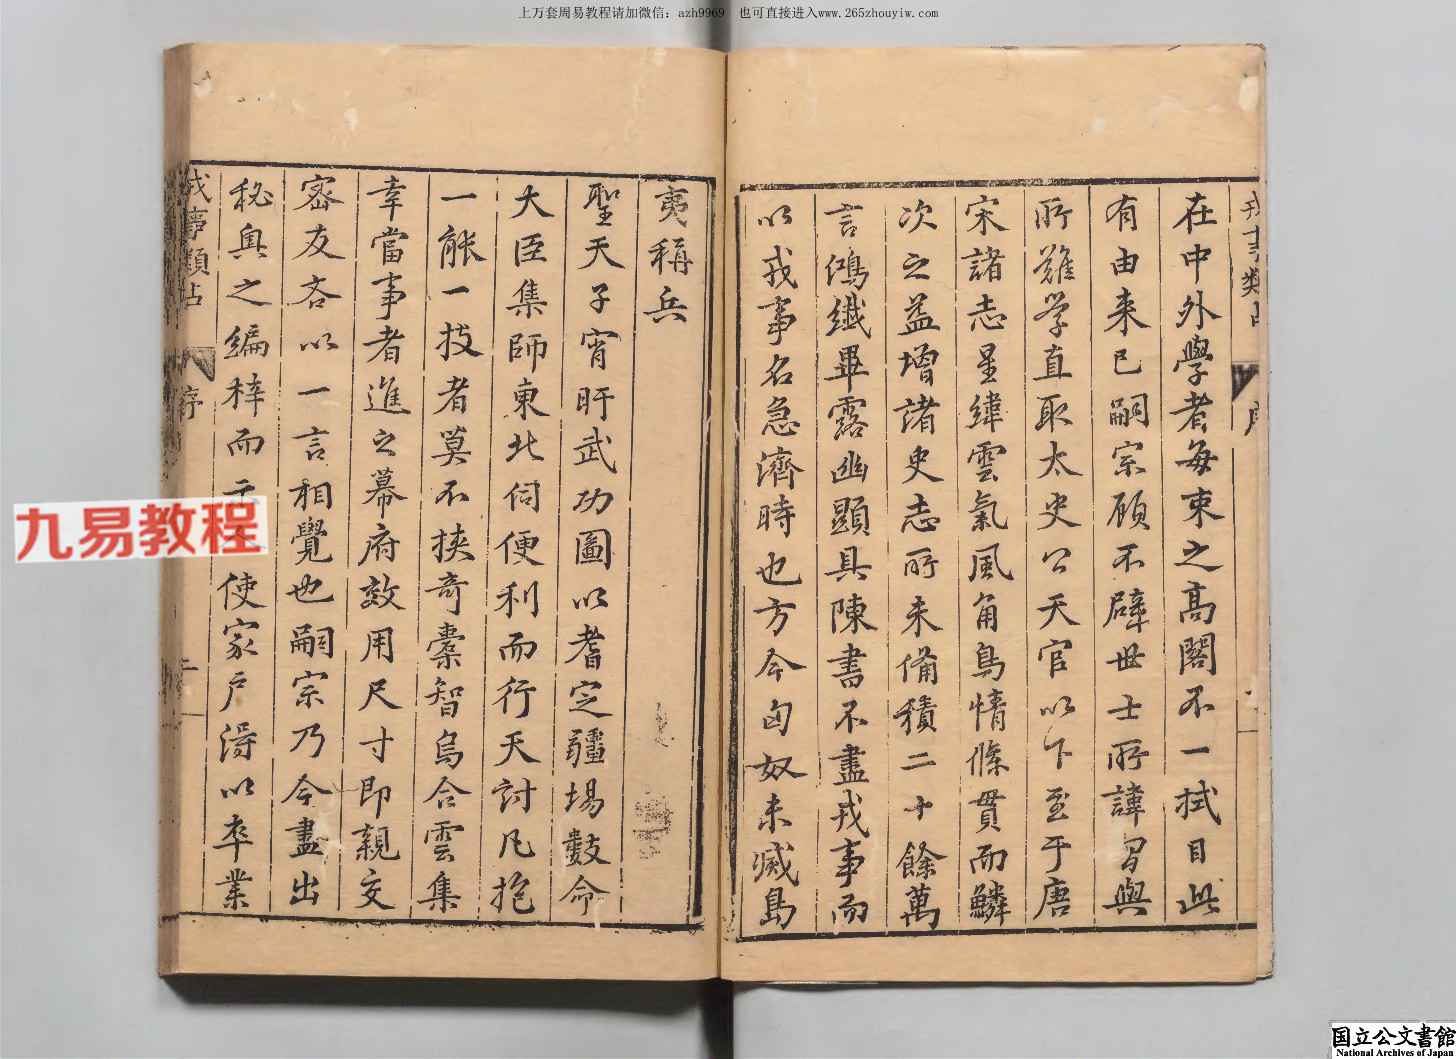 上万套周易教程请加微信：azh9969 也可直接进入www.265zhouyiw.com
在中外學者每束之高閣不一拭目此
有由来已嗣宗顧不辟世士所諱習與
所難學直取太史公天官以下至于唐
宋諸志星緯雲氣風角鳥情條貫而鱗
次之益增諸史志所未備積二十餘萬
言鴻纖畢露幽顯具陳書不盡戎事而
以戎事名急濟時也方今匈奴未滅島
夷稱兵
聖天子宵旰武功圖以耆定疆埸數命
大臣集師東北伺便利而行天討凡抱
一能一技者莫不挾奇橐智烏合雲集
幸當事者進之幕府效用尺寸即親交
密友吝以一言相覺也嗣宗乃今盡出
秘奥之編梓而使家戶淂以卒業
戎事類占
序
九易教程
国立公文書館
National Archives of Japan